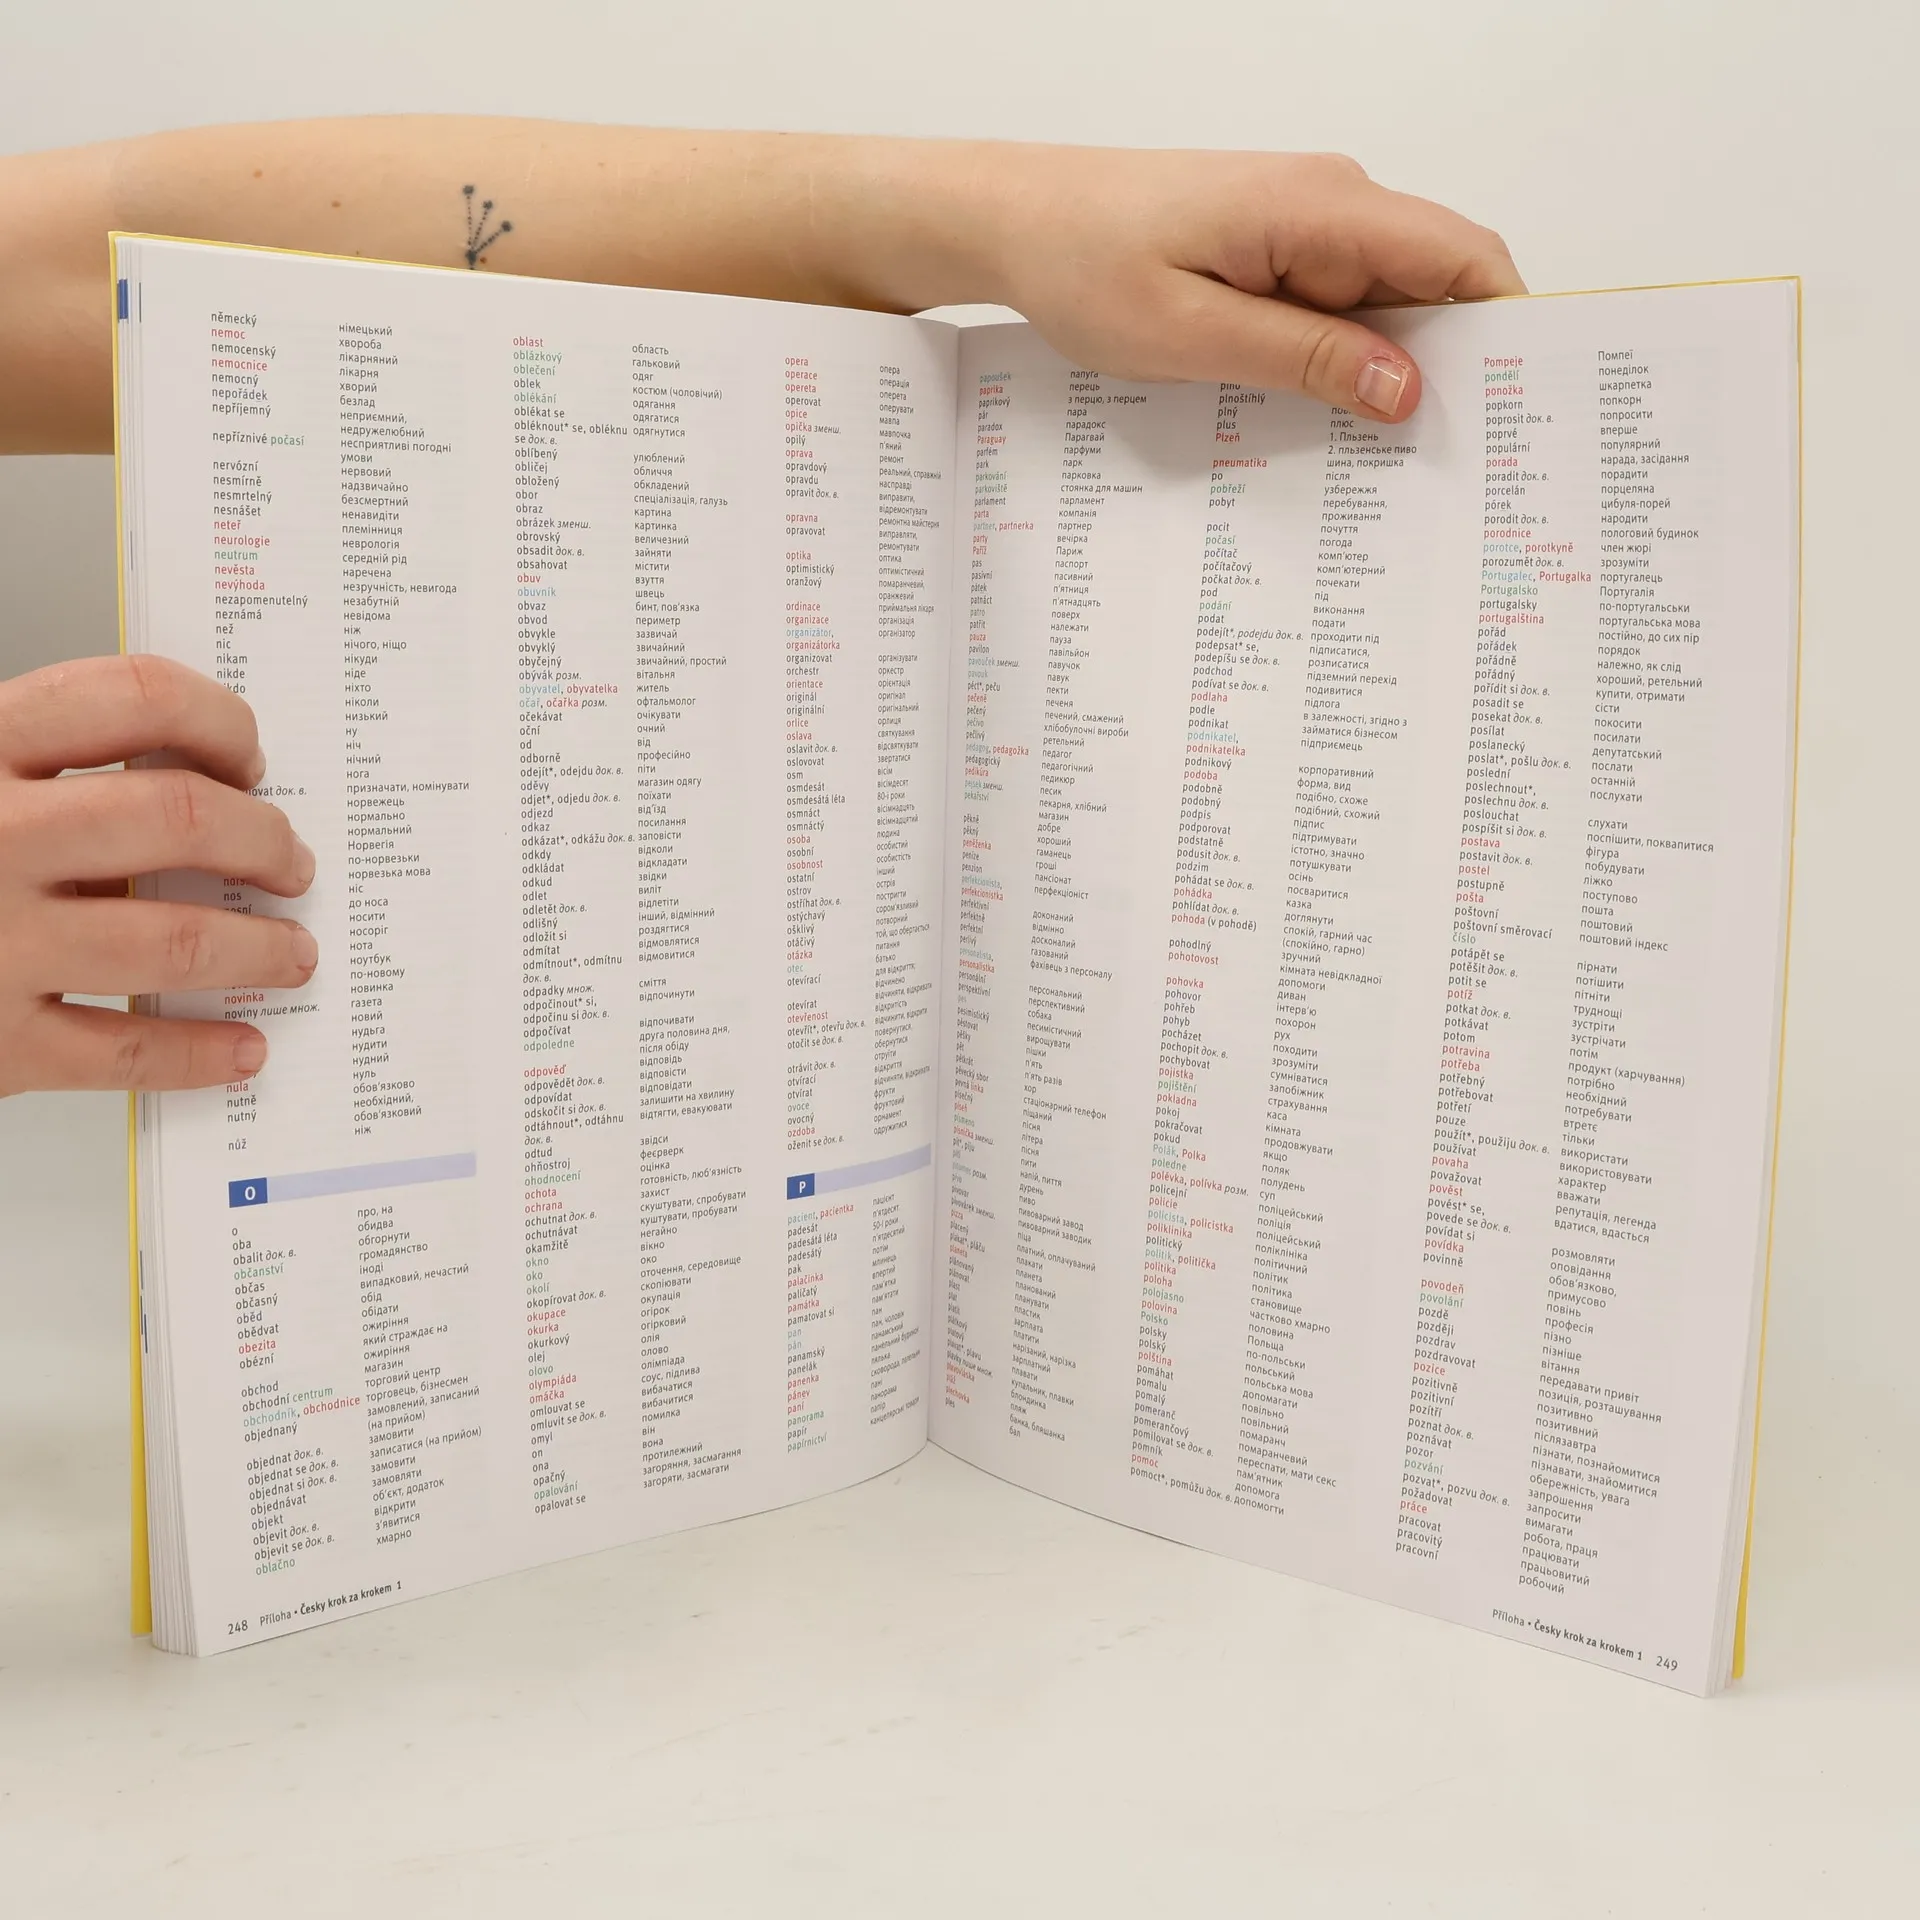 německý німецький
nemoc хвороба
nemocenský лікарняний
nemocnice лікарня
nemocný хворий
nepořádek безлад
nepříjemný неприємний,
недружелюбний
nepříznivé počasí несприятливі погодні
умови
nervózní нервовий
nesmírně надзвичайно
nesmrtelný безсмертний
nesnášet ненавидіти
neteř племінниця
neurologie неврологія
neutrum середній рід
nevěsta наречена
nevýhoda незручність, невигода
nezapomenutelný незабутній
neznámá невідома
než ніж
nic нічого, ніщо
nikam нікуди
nikde ніде
ніхто
ніколи
низький
ну
ніч
нічний
нога
док. в. призначати, номінувати
норвежець
нормально
нормальний
Норвегія
по-норвезьки
норвезька мова
nos ніс
до носа
носити
носоріг
нота
ноутбук
по-новому
novinka новинка
noviny лише множ. газета
новий
нудьга
нудити
нудний
nula нуль
nutně обов'язково
nutný необхідний,
обов'язковий
nůž ніж
O
o про, на
oba обидва
obalit док. в. обгорнути
občanství громадянство
občas іноді
občasný випадковий, нечастий
oběd обід
obědvat обідати
obezita ожиріння
obézní який страждає на
ожиріння
obchod магазин
obchodní centrum торговий центр
obchodník, obchodnice торговець, бізнесмен
objednaný замовлений, записаний
(на прийом)
objednat док. в. замовити
objednat se док. в. записатися (на прийом)
objednat si док. в. замовити
objednávat замовляти
objekt об'єкт, додаток
objevit док. в. відкрити
objevit se док. в. з'явитися
oblačno хмарно
oblast область
oblázkový гальковий
oblečení одяг
oblek костюм (чоловічий)
oblékání одягання
oblékat se одягатися
obléknout* se, obléknu одягнутися
se док. в.
oblíbený улюблений
obličej обличчя
obložený обкладений
obor спеціалізація, галузь
obraz картина
obrázek зменш. картинка
obrovský величезний
obsadit док. в. зайняти
obsahovat містити
obuv взуття
obuvník швець
obvaz бинт, пов'язка
obvod периметр
obvykle зазвичай
obvyklý звичайний
obyčejný звичайний, простий
obývák розм. вітальня
obyvatel, obyvatelka житель
očař, očařka розм. офтальмолог
očekávat очікувати
oční очний
od від
odborně професійно
odejít*, odejdu док. в. піти
oděvy магазин одягу
odjet*, odjedu док. в. поїхати
odjezd від'їзд
odkaz посилання
odkázat*, odkážu док. в. заповісти
odkdy відколи
odkládat відкладати
odkud звідки
odlet виліт
odletět док. в. відлетіти
odlišný інший, відмінний
odložit si роздягтися
odmítat відмовлятися
odmítnout*, odmítnu відмовитися
док. в.
odpadky множ. сміття
odpočinout* si, відпочинути
odpočinu si док. в.
odpočívat відпочивати
odpoledne друга половина дня,
після обіду
odpověď відповідь
odpovědět док. в. відповісти
odpovídat відповідати
odskočit si док. в. залишити на хвилину
odtáhnout*, odtáhnu відтягти, евакуювати
док. в.
odtud звідси
ohňostroj феєрверк
ohodnocení оцінка
ochota готовність, люб'язність
ochrana захист
ochutnat док. в. скуштувати, спробувати
ochutnávat куштувати, пробувати
okamžitě негайно
okno вікно
oko око
okolí оточення, середовище
okopírovat док. в. скопіювати
okupace окупація
okurka огірок
okurkový огірковий
olej олія
olovo олово
olympiáda олімпіада
omáčka соус, підлива
omlouvat se вибачатися
omluvit se док. в. вибачитися
omyl помилка
on він
ona вона
opačný протилежний
opalování загоряння, засмагання
opalovat se загоряти, засмагати
opera опера
operace операція
opereta оперета
operovat оперувати
opice мавпа
opička зменш. мавпочка
opilý п'яний
oprava ремонт
opravdový реальний, справжній
opravdu насправді
opravit док. в. виправити,
відремонтувати
opravna ремонтна майстерня
opravovat виправляти,
ремонтувати
optika оптика
optimistický оптимістичний
oranžový помаранчевий,
оранжевий
ordinace приймальня лікаря
organizace організація
organizátor, організатор
organizátorka
organizovat організувати
orchestr оркестр
orientace орієнтація
originál оригінал
originální оригінальний
orlice орлиця
oslava святкування
oslavit док. в. відсвяткувати
oslovovat звертатися
osm вісім
osmdesát вісімдесят
osmdesátá léta 80-і роки
osmnáct вісімнадцять
osmnáctý вісімнадцятий
osoba людина
osobní особистий
osobnost особистість
ostatní інший
ostrov острів
ostříhat док. в. постригти
ostýchavý сором'язливий
ošklivý потворний
otáčivý той, що обертається
otázka питання
otec батько
otevírací для відкриття,
відчинено
otevírat відчиняти, відкривати
otevřenost відкритість
otevřít*, otevřu док. в. відчинити, відкрити
otočit se док. в. повернутися,
обернутися
otrávit док. в. отруїти
otvírací відкриття
otvírat відчиняти, відкривати
ovoce фрукти
ovocný фруктовий
ozdoba орнамент
oženit se док. в. одружитися
P
pacient, pacientka пацієнт
padesát п'ятдесят
padesátá léta 50-і роки
padesátý п'ятдесятий
pak потім
palačinka млинець
paličatý впертий
památka пам'ятка
pamatovat si пам'ятати
pan пан
pán пан, чоловік
panamský панамський
panelák панельний будинок
panenka лялька
pánev сковорода, пательня
paní пані
panorama панорама
papír папір
papírnictví канцелярські товари
papoušek папуга
paprika перець
paprikový з перцю, з перцем
pár пара
paradox парадокс
Paraguay Парагвай
parfém парфуми
park парк
parkování парковка
parkoviště стоянка для машин
parlament парламент
parta компанія
partner, partnerka партнер
party вечірка
Paříž Париж
pas паспорт
pasivní пасивний
pátek п'ятниця
patnáct п'ятнадцять
patro поверх
patřit належати
pauza пауза
pavilon павільйон
pavouček зменш. павучок
pavouk павук
péct*, peču пекти
pečeně печеня
pečený печений, смажений
pečivo хлібобулочні вироби
pečlivý ретельний
pedagog, pedagožka педагог
pedagogický педагогічний
pedikúra педикюр
pejsek зменш. песик
pekařství пекарня, хлібний
магазин
pěkně добре
pěkný хороший
peněženka гаманець
peníze гроші
penzion пансіонат
perfekcionista, перфекціоніст
perfekcionistka
perfektivní доконаний
perfektně відмінно
perfektní досконалий
perlivý газований
personalista, фахівець з персоналу
personalistka
personální персональний
perspektivní перспективний
pes собака
pesimistický песимістичний
pěstovat вирощувати
pěšky пішки
pět п'ять
pětkrát п'ять разів
pěvecký sbor хор
pevná linka стаціонарний телефон
písečný піщаний
píseň пісня
písmeno літера
písnička зменш. пісня
pít*, piju пити
pití напій, пиття
дурень
pivo пиво
pivovar пивоварний завод
pivovárek зменш. пивоварний заводик
pizza піца
placený платний, оплачуваний
plakat*, pláču плакати
planeta планета
plánovaný планований
plánovat планувати
plast пластик
plat зарплата
platit платити
plátkový нарізаний, нарізка
platový зарплатний
plavat*, plavu плавати
plavky лише множ. купальник, плавки
plavovláska блондинка
pláž пляж
plechovka банка, бляшанка
ples бал
plno
plnoštíhlý
plný
plus плюс
Plzeň 1. Пльзень
2. пльзенське пиво
pneumatika шина, покришка
po після
pobřeží узбережжя
pobyt перебування,
проживання
pocit почуття
počasí погода
počítač комп'ютер
počítačový комп'ютерний
počkat док. в. почекати
pod під
podání виконання
podat подати
podejít*, podejdu док. в. проходити під
podepsat* se, підписатися,
podepíšu se док. в. розписатися
podchod підземний перехід
podívat se док. в. подивитися
podlaha підлога
podle в залежності, згідно з
podnikat займатися бізнесом
podnikatel, підприємець
podnikatelka
podnikový корпоративний
podoba форма, вид
podobně подібно, схоже
podobný подібний, схожий
podpis підпис
podporovat підтримувати
podstatně істотно, значно
podusit док. в. потушкувати
podzim осінь
pohádat se док. в. посваритися
pohádka казка
pohlídat док. в. доглянути
pohoda (v pohodě) спокій, гарний час
(спокійно, гарно)
pohodlný зручний
pohotovost кімната невідкладної
допомоги
pohovka диван
pohovor інтерв'ю
pohřeb похорон
pohyb рух
pocházet походити
pochopit док. в. зрозуміти
pochybovat сумніватися
pojistka запобіжник
pojištění страхування
pokladna каса
pokoj кімната
pokračovat продовжувати
pokud якщо
Polák, Polka поляк
poledne полудень
polévka, polívka розм. суп
policejní поліцейський
policie поліція
policista, policistka поліцейський
poliklinika поліклініка
politický політичний
politik, politička політик
politika політика
poloha становище
polojasno частково хмарно
polovina половина
Polsko Польща
polsky по-польськи
polský польський
polština польська мова
pomáhat допомагати
pomalu повільно
pomalý повільний
pomeranč помаранч
pomerančový помаранчевий
pomilovat se док. в. переспати, мати секс
pomník пам'ятник
pomoc допомога
pomoct*, pomůžu док. в. допомогти
Pompeje Помпеї
pondělí понеділок
ponožka шкарпетка
popkorn попкорн
poprosit док. в. попросити
poprvé вперше
populární популярний
porada нарада, засідання
poradit док. в. порадити
porcelán порцеляна
pórek цибуля-порей
porodit док. в. народити
porodnice пологовий будинок
porotce, porotkyně член жюрі
porozumět док. в. зрозуміти
Portugalec, Portugalka португалець
Portugalsko Португалія
portugalsky по-португальськи
portugalština португальська мова
pořád постійно, до сих пір
pořádek порядок
pořádně належно, як слід
pořádný хороший, ретельний
pořídit si док. в. купити, отримати
posadit se сісти
posekat док. в. покосити
posílat посилати
poslanecký депутатський
poslat*, pošlu док. в. послати
poslední останній
poslechnout*, послухати
poslechnu док. в.
poslouchat слухати
pospíšit si док. в. поспішити, поквапитися
postava фігура
postavit док. в. побудувати
postel ліжко
postupně поступово
pošta пошта
poštovní поштовий
poštovní směrovací поштовий індекс
číslo
potápět se пірнати
potěšit док. в. потішити
potit se пітніти
potíž труднощі
potkat док. в. зустріти
potkávat зустрічати
potom потім
potravina продукт (харчування)
potřeba потрібно
potřebný необхідний
potřebovat потребувати
potřetí втретє
pouze тільки
použít*, použiju док. в. використати
používat використовувати
povaha характер
považovat вважати
pověst репутація, легенда
povést* se, вдатися, вдасться
povede se док. в.
povídat si розмовляти
povídka оповідання
povinně обов'язково,
примусово
povodeň повінь
povolání професія
pozdě пізно
později пізніше
pozdrav вітання
pozdravovat передавати привіт
pozice позиція, розташування
pozitivně позитивно
pozitivní позитивний
pozítří післязавтра
poznat док. в. пізнати, познайомитися
poznávat пізнавати, знайомитися
pozor обережність, увага
pozvání запрошення
pozvat*, pozvu док. в. запросити
požadovat вимагати
práce робота, праця
pracovat працювати
pracovitý працьовитий
pracovní робочий
248 Příloha • Česky krok za krokem 1
Příloha • Česky krok za krokem 1 249